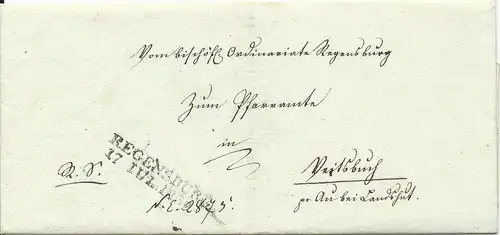 Vom bischöfl. Ordinariate Regensburg
Zum Pfarramte
in
REGENSBURG
17 JUL.
R. S.
Veitsbuch
pr Au bei Landshut.
N. E. 2875.